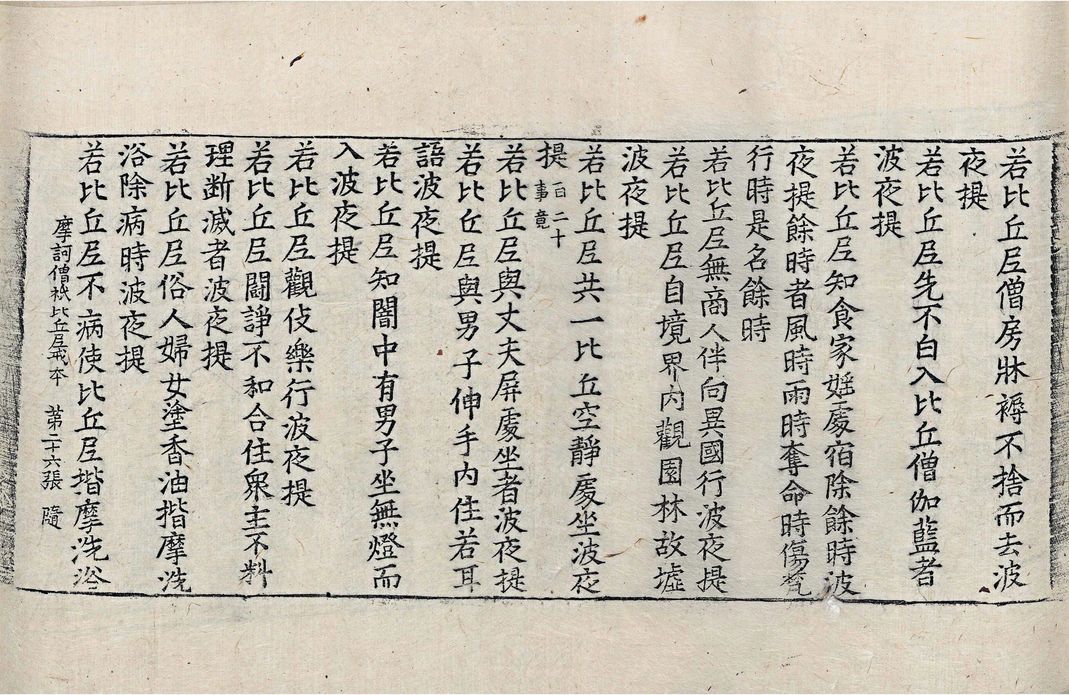 若比丘尼僧房牀褥不捨而去波
夜提
若比丘尼先不白入比丘僧伽藍者
波夜提
若比丘尼知食家婬處宿除餘時波
夜提餘時者風時雨時奪命時傷梵
行時是名餘時
若比丘尼無商人伴向異國行波夜提
若比丘尼自境界內觀園林故墟
波夜提
若比丘尼共一比丘空靜處坐波夜
提 一百二十事竟
若比丘尼與丈夫屏處坐者波夜提
若比丘尼與男子伸手內住若耳
語波夜提
若比丘尼知闇中有男子坐無燈而
入波夜提
若比丘尼觀伎樂行波夜提
若比丘尼鬪諍不和合住衆主不料
理斷滅者波夜提
若比丘尼俗人婦女塗香油揩摩洗
浴除病時波夜提
若比丘尼不病使比丘尼揩摩洗浴
摩訶僧祇比丘尼戒本 第二十六張 隨